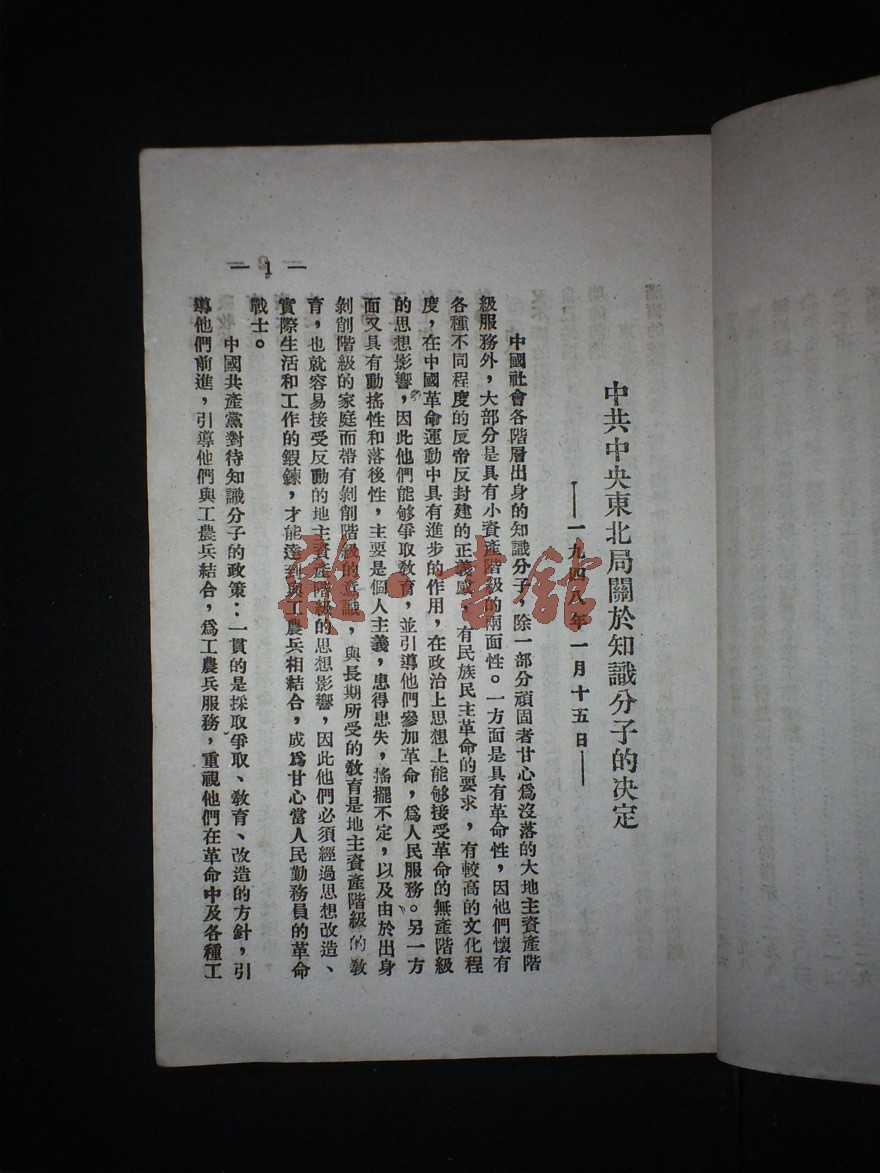 中共中央東北局關於知識分子的決定
——一九四八年一月十五日——
中國社會各階層出身的知識分子，除一部分頑固者甘心爲沒落的大地主資產階
級服務外，大部分是具有小資產階級的兩面性。一方面是具有革命性，因他們懷有
各種不同程度的反帝反封建的正義感，有民族民主革命的要求，有較高的文化程
度，在中國革命運動中具有進步的作用，在政治上思想上能够接受革命的無產階級
的思想影響，因此他們能够爭取教育，並引導他們參加革命，爲人民服務。另一方
面又具有動搖性和落後性，主要是個人主義，患得患失，搖擺不定，以及由於出身
剝削階級的家庭而帶有剝削階級的意識，與長期所受的教育是地主資產階級的教
育，也就容易接受反動的地主資產階級的思想影響，因此他們必須經過思想改造、
實際生活和工作的鍜鍊，才能達到與工農兵相結合，成爲甘心當人民勤務員的革命
戰士。
中國共產黨對待知識分子的政策：一貫的是採取爭取、教育、改造的方針，引
導他們前進，引導他們與工農兵結合，爲工農兵服務，重視他們在革命中及各種工
— 1 —
雜·書館